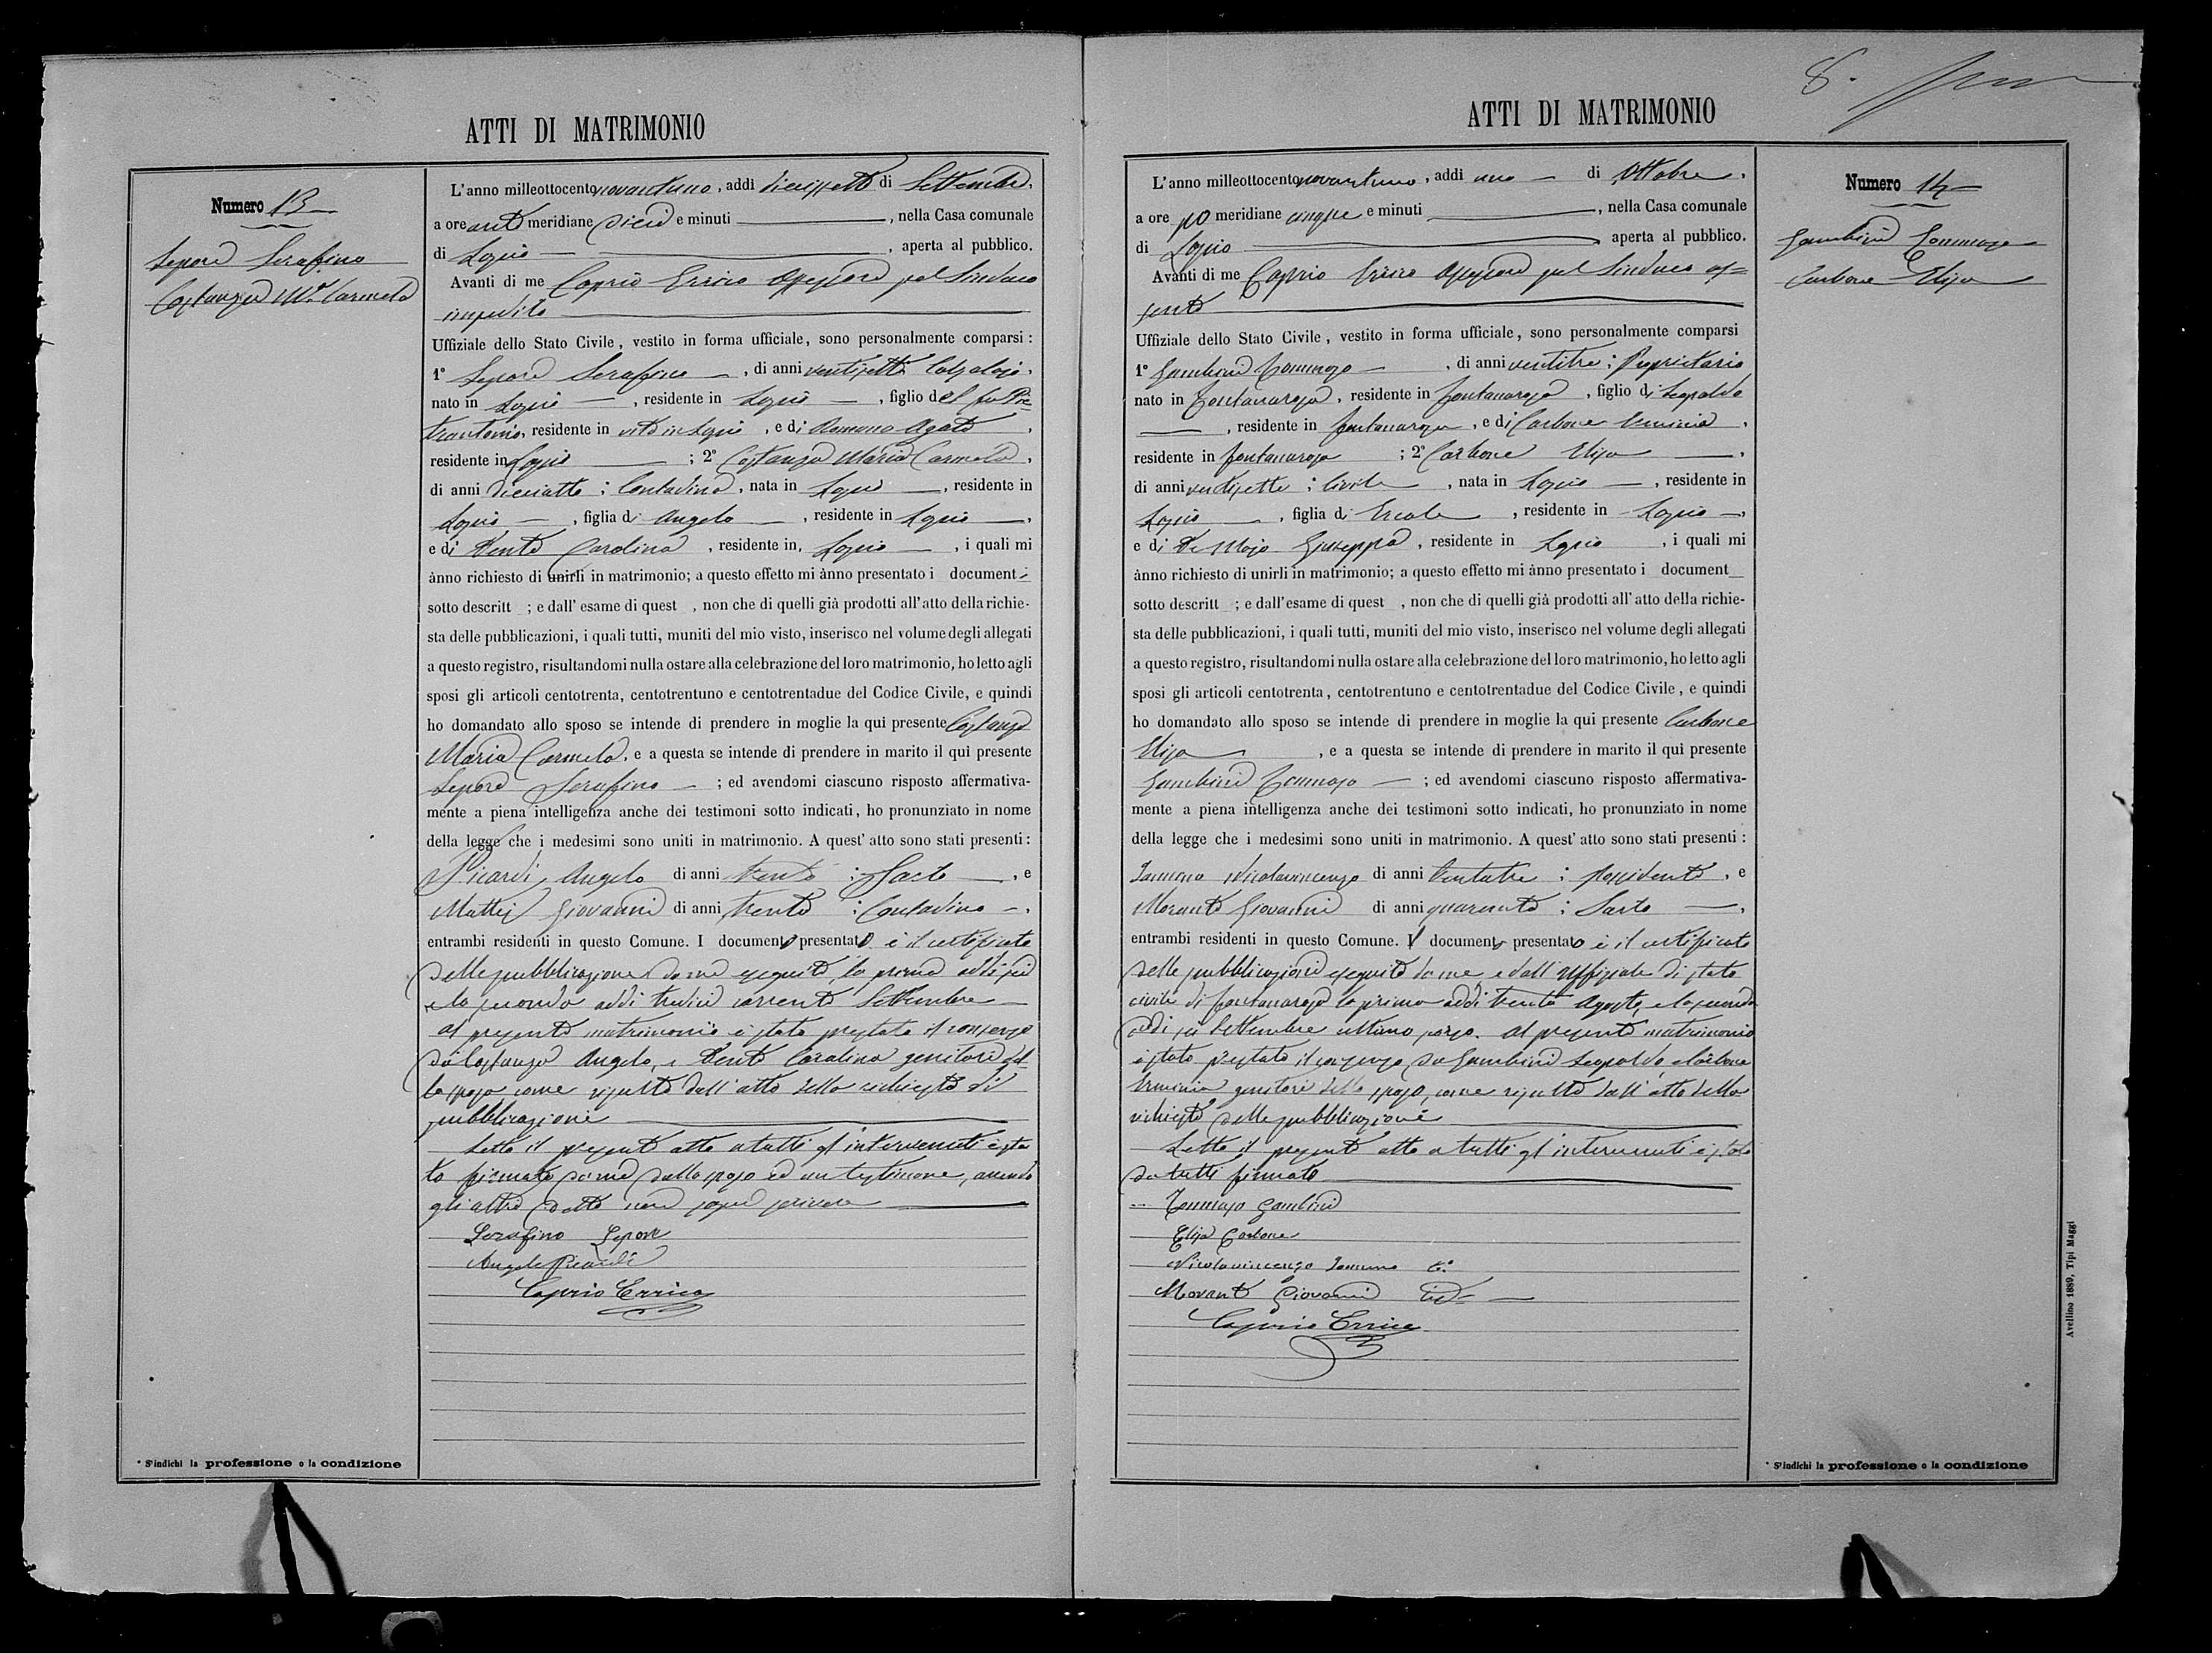 ATTI DI MATRIMONIO
Numero 13
Lepore Serafino
Costanza Ma. Carmela
L'anno milleottocentonovantuno, addi diecissette di Settembre,
a ore anti meridiane dieci e minuti , nella Casa comunale
di Lapio , aperta al pubblico.
Avanti di me Caprio Errico Assessore pel Sindaco
impedito
Uffiziale dello Stato Civile, vestito in forma ufficiale, sono personalmente comparsi:
1° Lepore Serafino , di anni ventisette Calzolajo,
nato in Lapio , residente in Lapio , figlio del fu Pie=
trantonio, residente in vita in Lapio , e di Romano Agata ,
residente in Lapio ; 2° Costanza Maria Carmela,
di anni dieciotto; Contadina, nata in Lapio , residente in
Lapio , figlia di Angelo , residente in Lapio ,
e di Carolina , residente in Lapio , i quali mi
ànno richiesto di unirli in matrimonio; a questo effetto mi ànno presentato i document
sotto descritt ; e dall'esame di quest , non che di quelli già prodotti all'atto della richie-
sta delle pubblicazioni, i quali tutti, muniti del mio visto, inserisco nel volume degli allegati
a questo registro, risultandomi nulla ostare alla celebrazione del loro matrimonio, ho letto agli
sposi gli articoli centotrenta, centotrentuno e centotrentadue del Codice Civile, e quindi
ho domandato allo sposo se intende di prendere in moglie la qui presente Costanza
Maria Carmela, e a questa se intende di prendere in marito il qui presente
Lepore Serafino ; ed avendomi ciascuno risposto affermativa-
mente a piena intelligenza anche dei testimoni sotto indicati, ho pronunziato in nome
della legge che i medesimi sono uniti in matrimonio. A quest'atto sono stati presenti:
Picardi Angelo di anni trenta ; Sarto , e
Mattej Giovanni di anni trenta ; Contadino ,
entrambi residenti in questo Comune. I documento presentato è il certificato
delle pubblicazioni da me eseguite, la prima addi sei
e la seconda addi tredici corrente Settembre
Al presente matrimonio è stato prestato il consenso
da Costanza Angelo, e Carolina genitori del=
la sposa come risulta dall'atto della richiesta di
pubblicazione
Letto il presente atto a tutti gl'intervenuti è sta
to firmato da me dallo sposo ed un testimone, avendo
gli altri detto non saper scrivere
Serafino Lepore
Angelo Picardi
Caprio Errico
* S'indichi la professione o la condizione
8.
ATTI DI MATRIMONIO
Numero 14
Gambini Tommaso
Carbone Elisa
L'anno milleottocentonovantuno, addi uno di Ottobre,
a ore po meridiane cinque e minuti , nella Casa comunale
di Lapio aperta al pubblico.
Avanti di me Caprio Errico Assessore pel Sindaco as=
sente
Uffiziale dello Stato Civile, vestito in forma ufficiale, sono personalmente comparsi
1° Gambini Tommaso , di anni ventitre; Proprietario
nato in Fontanarosa, residente in Fontanarosa , figlio di Leopoldo
, residente in Fontanarosa, e di Carbone Erminia ,
residente in Fontanarosa ; 2° Carbone Elisa ,
di anni ventisette; Civile , nata in Lapio , residente in
Lapio , figlia di Ercole , residente in Lapio ,
e di De Majo Giuseppa, residente in Lapio , i quali mi
ànno richiesto di unirli in matrimonio; a questo effetto mi ànno presentato i document
sotto descritt ; e dall'esame di quest , non che di quelli già prodotti all'atto della richie-
sta delle pubblicazioni, i quali tutti, muniti del mio visto, inserisco nel volume degli allegati
a questo registro, risultandomi nulla ostare alla celebrazione del loro matrimonio, ho letto agli
sposi gli articoli centotrenta, centotrentuno e centotrentadue del Codice Civile, e quindi
ho domandato allo sposo se intende di prendere in moglie la qui presente Carbone
Elisa , e a questa se intende di prendere in marito il qui presente
Gambini Tommaso ; ed avendomi ciascuno risposto affermativa-
mente a piena intelligenza anche dei testimoni sotto indicati, ho pronunziato in nome
della legge che i medesimi sono uniti in matrimonio. A quest'atto sono stati presenti:
Nicolavincenzo di anni trentatre ; Possidente , e
Morante Giovanni di anni quaranta ; Sarto ,
entrambi residenti in questo Comune. Il documento presentato è il certificato
delle pubblicazioni eseguite da me, e dall'uffiziale di stato
civile di Fontanarosa la prima addi trenta Agosto, e la seconda
addi sei Settembre ultimo scorso. Al presente matrimonio
è stato prestato il consenso da Gambini Leopoldo, e Carbone
Erminia genitori dello sposo, come risulta dall'atto della
richiesta delle pubblicazioni
Letto il presente atto a tutti gl'intervenuti è stato
da tutti firmato
Tommaso Gambini
Elisa Carbone
Nicolavincenzo
Morante Giovanni
Caprio Errico
* S'indichi la professione o la condizione
Avellino 1889, Tipi Maggi